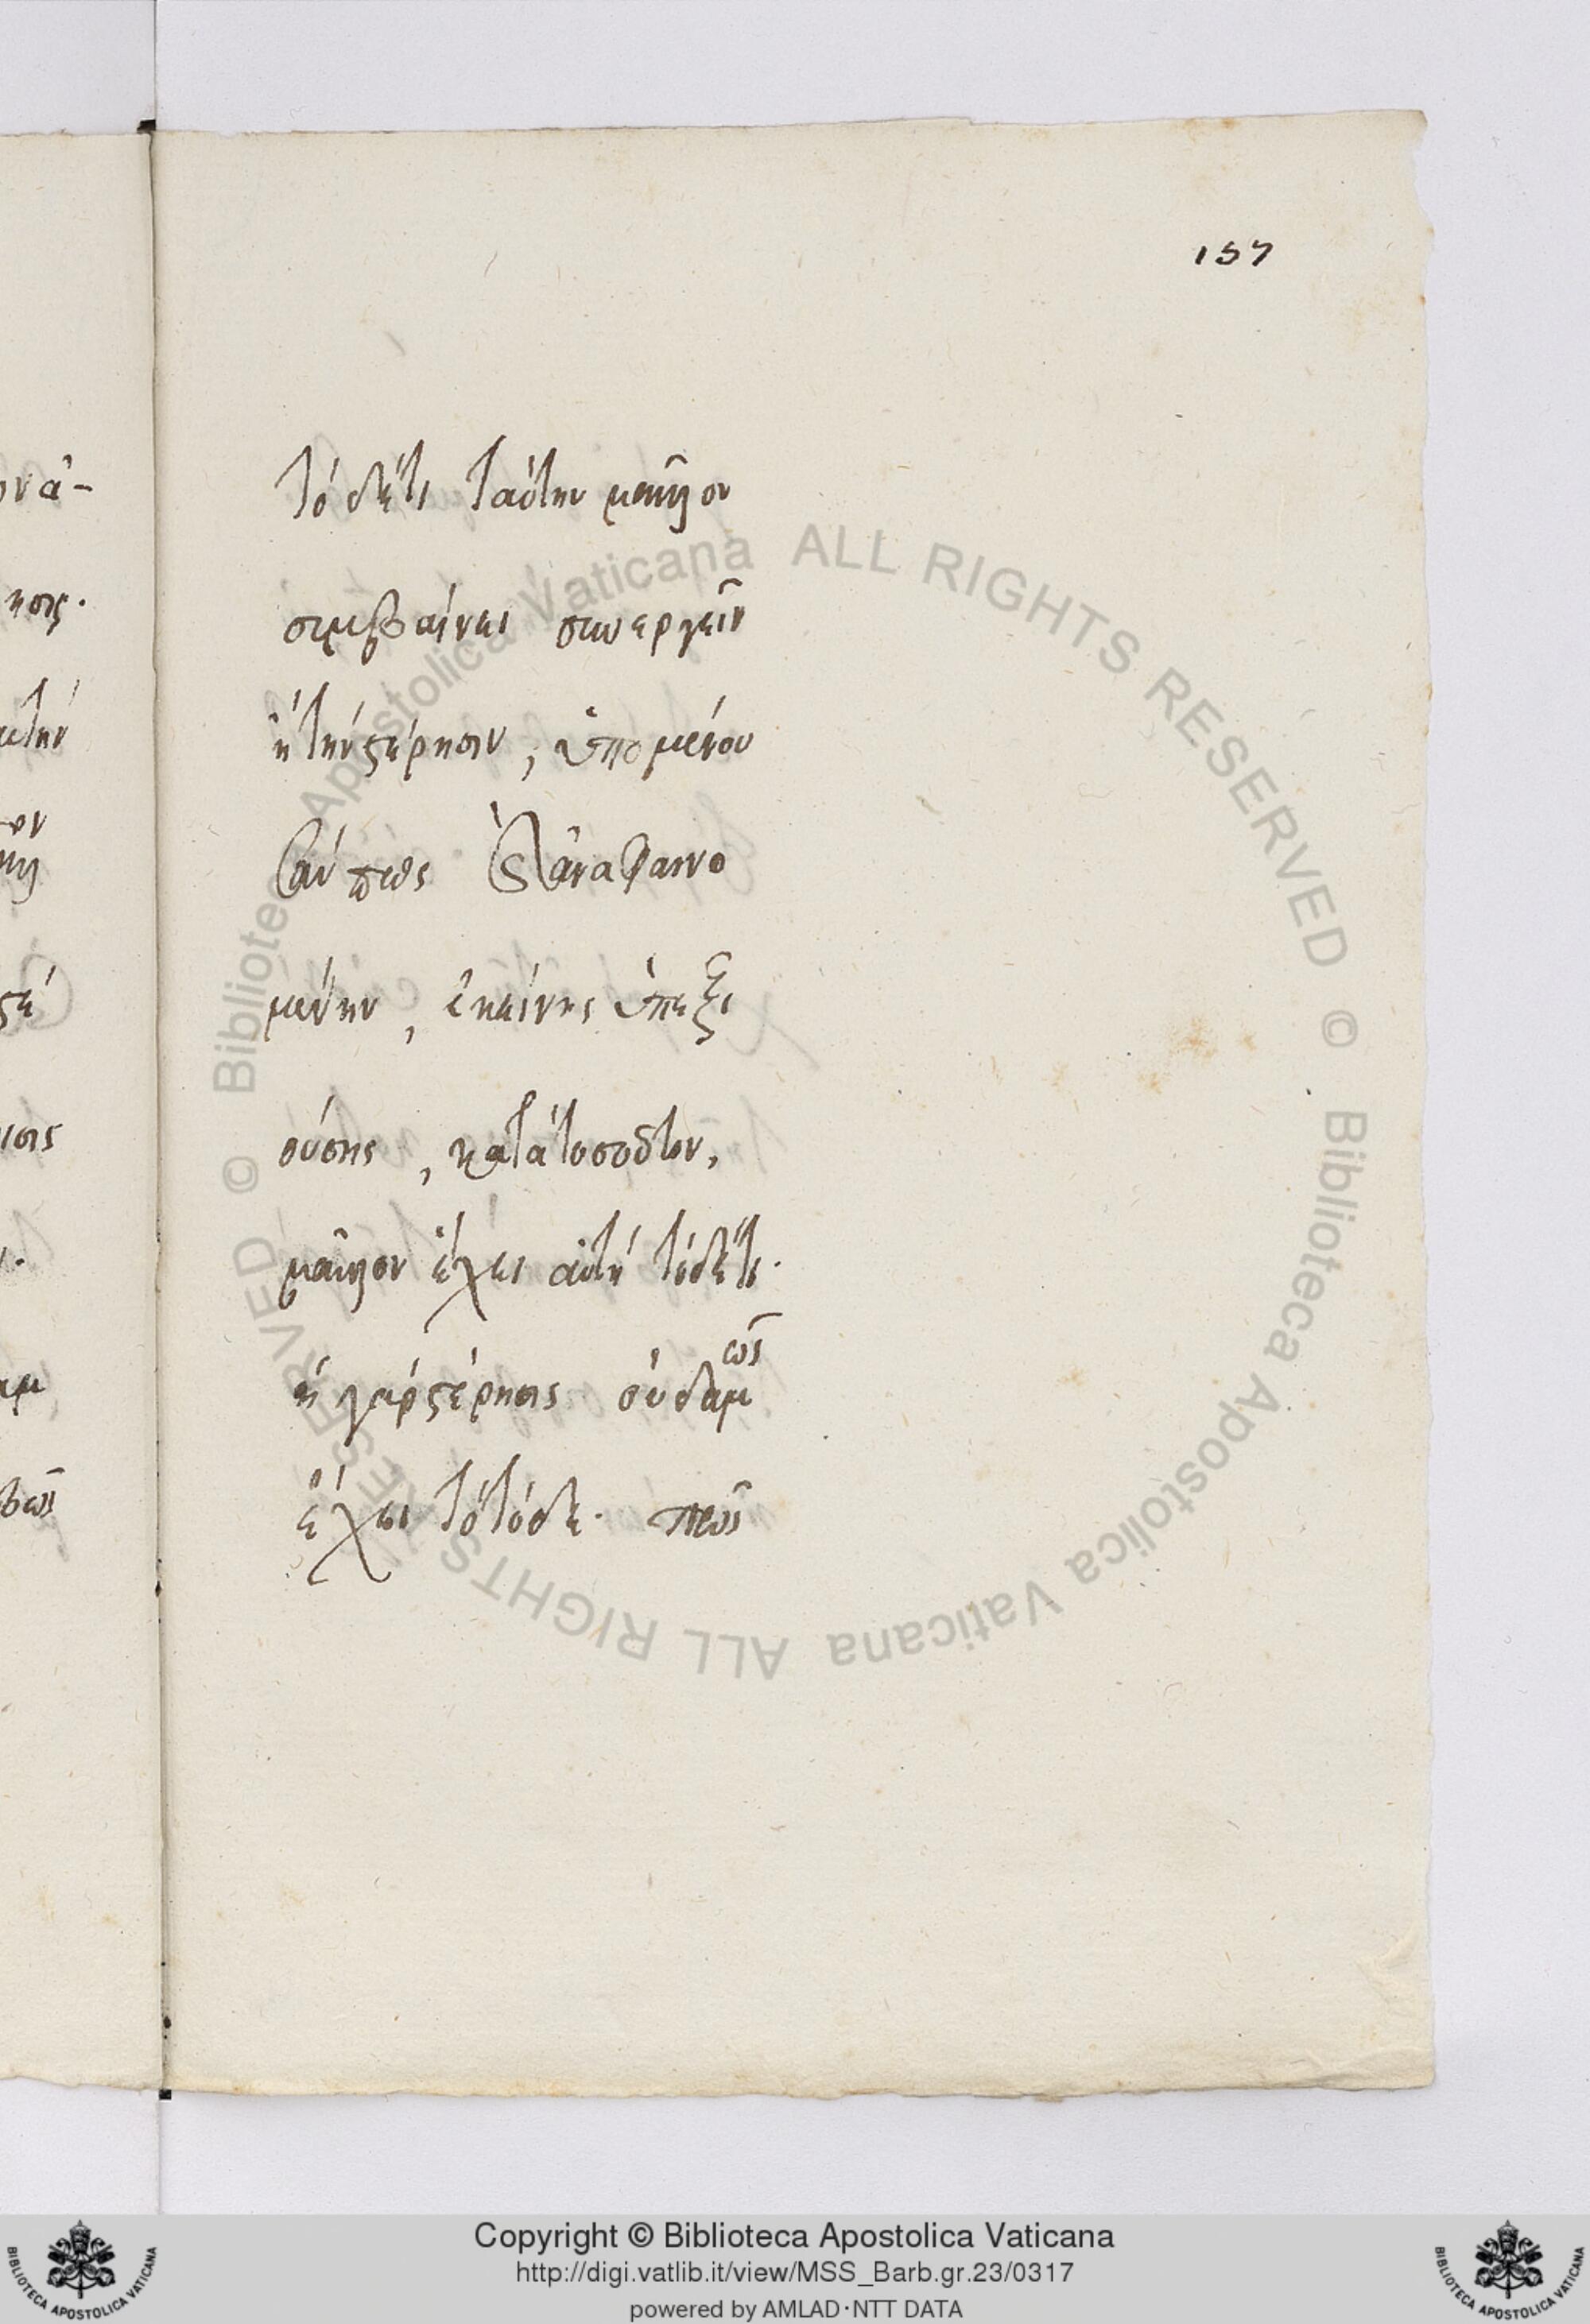 157
τόδέτι ταύτην μᾶλλον
συμβαίνει συνεργεῖν
ἢ τὴν στέρησιν, ὑπομένου
σαν πρὸς ἀναφαινο
μένην, ἐκείνης ὑπεξι
ούσης, κατὰ τοσοῦτον,
μᾶλλον ἔχει αὐτὴ τόδέτι.
ἡ γὰρ στέρησις οὐδαμῶς
ἔχει τὸ τόδε. πρὸς
ονά-
ησις.
στέ
Copyright © Biblioteca Apostolica Vaticana
http://digi.vatlib.it/view/MSS_Barb.gr.23/0317
powered by AMLAD·NTT DATA
© Biblioteca Apostolica Vaticana ALL RIGHTS RESERVED © Biblioteca Apostolica Vaticana ALL RIGHTS RESERVED
BIBLIOTECA APOSTOLICA VATICANA
BIBLIOTECA APOSTOLICA VATICANA